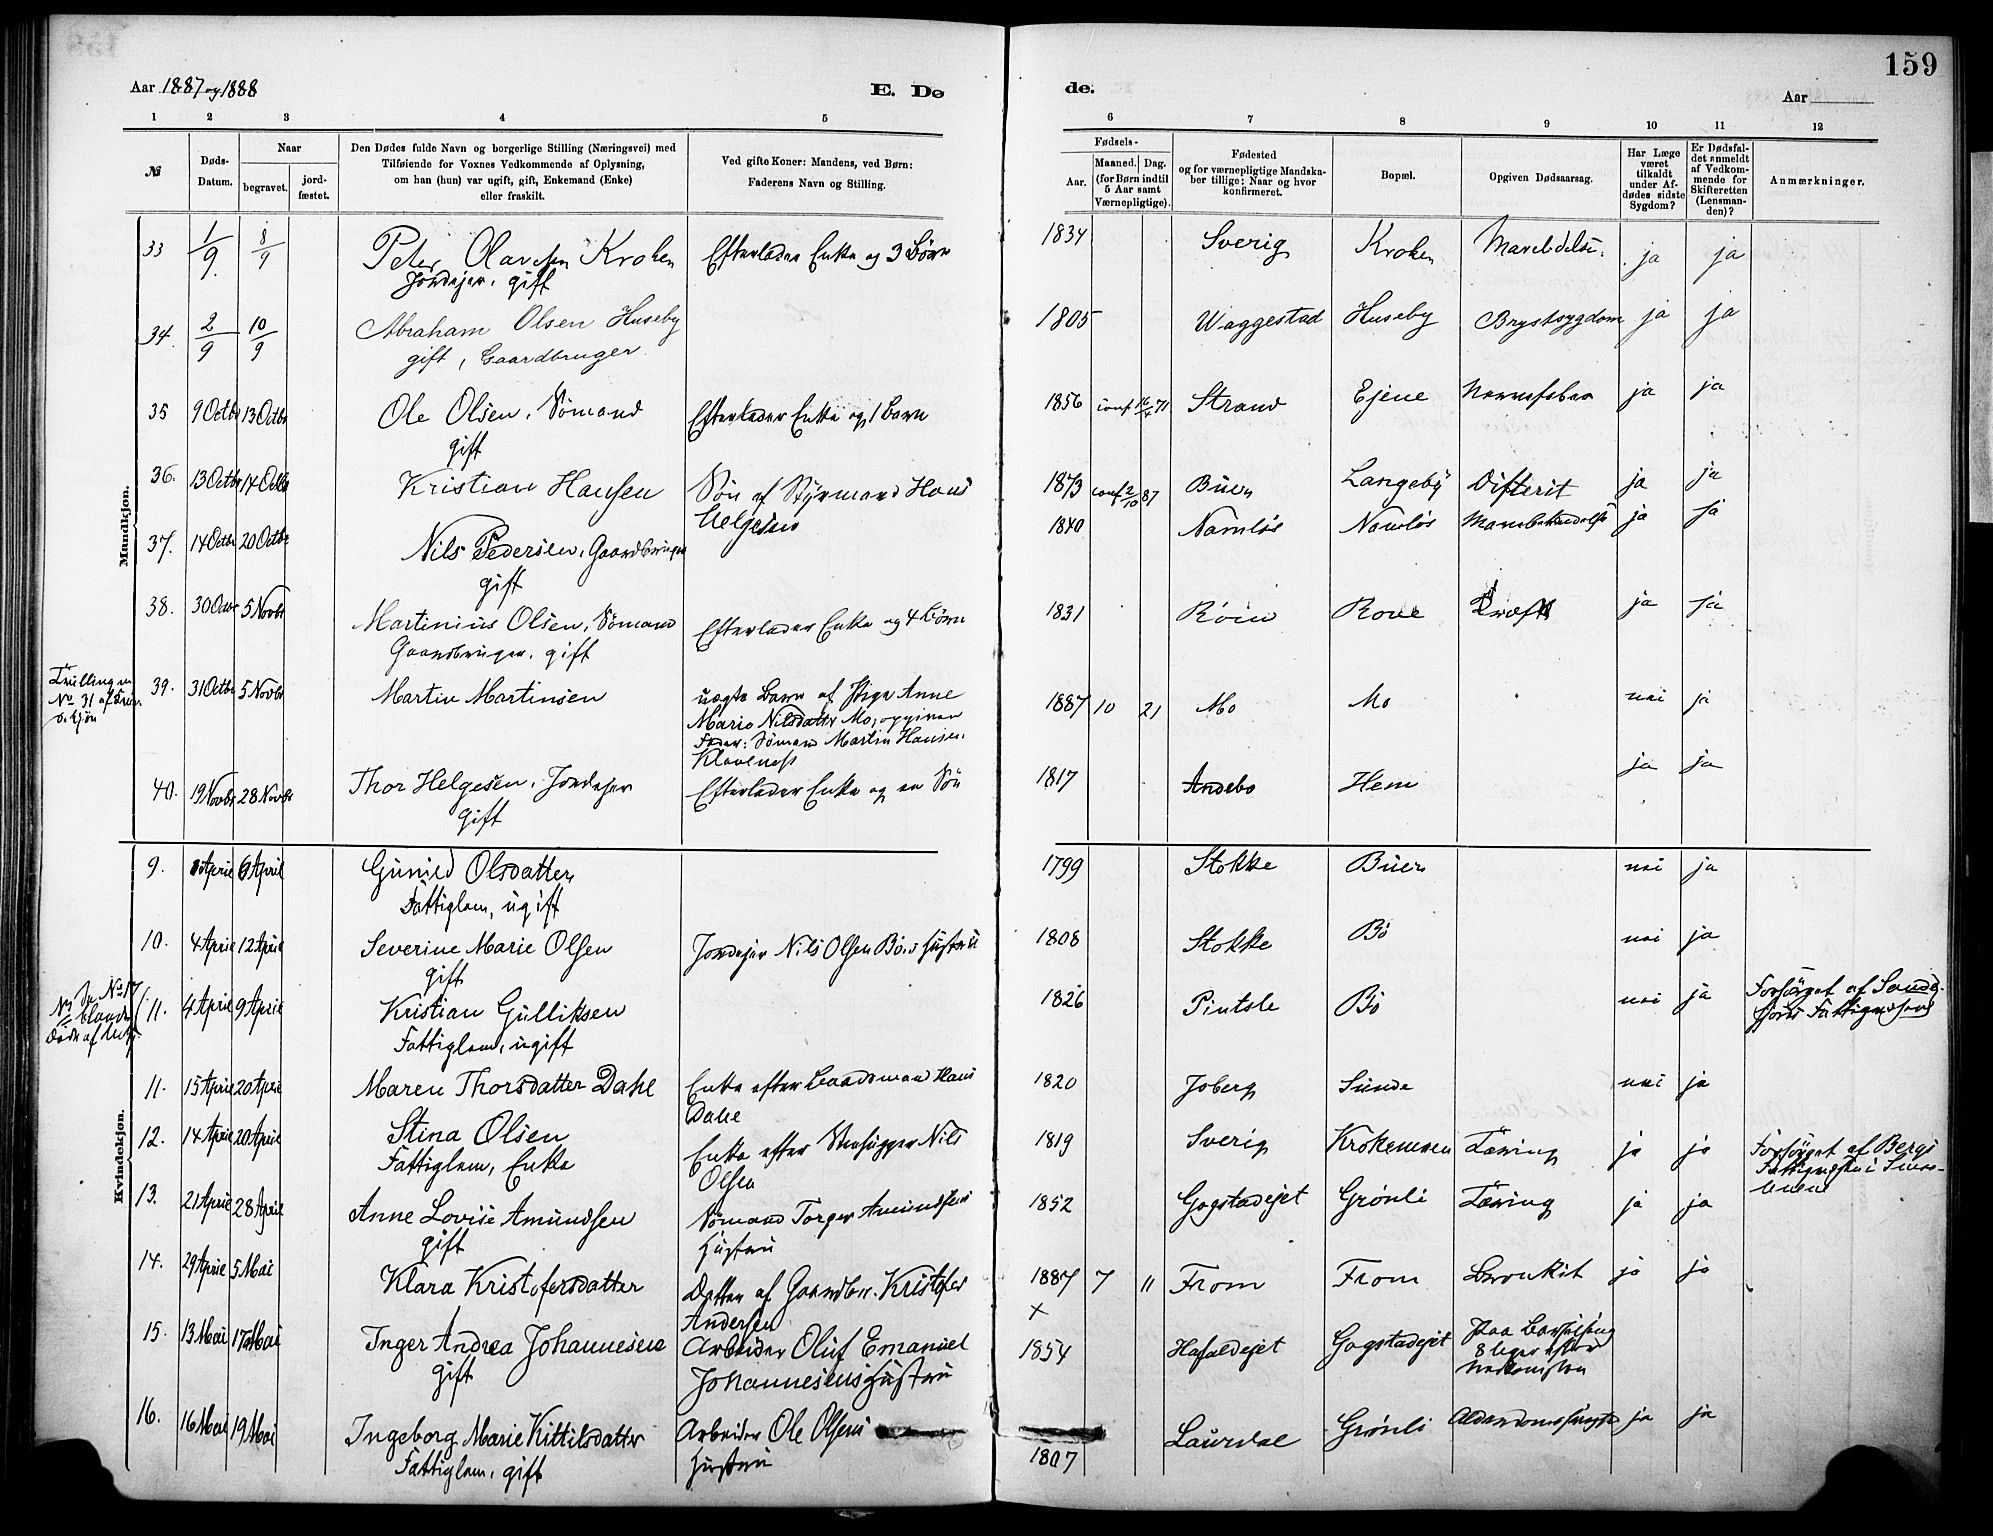 159
Aar 1887 og 1888
E. Dø
de.
Aar
1 2 3 4 5 6 7 8 9 10 11 12
№
Døds-
Datum.
Naar
begravet.
jord-
fæstet.
Den Dødes fulde Navn og borgerlige Stilling (Næringsvei) med
Tilføiende for Voxnes Vedkommende af Oplysning,
om han (hun) var ugift, gift, Enkemand (Enke)
eller fraskilt.
Ved gifte Koner: Mandens, ved Børn:
Faderens Navn og Stilling.
Fødsels-
Aar.
Maaned. Dag.
(for Børn indtil
5 Aar samt
Værnepligtige).
Fødested
og for værnepligtige Mandska-
ber tillige: Naar og hvor
konfirmeret.
Bopæl.
Opgiven Dødsaarsag.
Har Læge
været
tilkaldt
under Af-
dødes sidste
Sygdom?
Er Dødsfal-
det anmeldt
af Vedkom-
mende for
Skifteretten
(Lensman-
den)?
Anmærkninger.
Mandkjøn.
33 1/9 8/9 Peter Olavesen Kroken Efterlader Enke og 3 Børn 1834 Sverig Kroken ja ja
Jordejer, gift
34. 2/9 10/9 Abraham Olsen Huseby 1805 Waggestad Huseby Brystsygdom ja ja
gift, Gaardbruger
35 9 Octbr 13 Octbr Ole Olsen, Sømand Efterlader Enke og 1 Barn 1856 conf 16/4 71 Strand Ejene Nervefeber ja ja
gift
36. 13 Octbr 14 Octbr Kristian Hansen Søn af Styrmand Hans 1873 conf 2/10 87 Buer Langeby Difterit ja ja
Helgesen
37. 14 Octbr 20 Octbr Nils Pedersen, Gaardbruger 1840 Namløs Namløs ja ja
gift
38. 30 Octbr 5 Novbr Martinius Olsen, Sømand Efterlader Enke og 4 Børn 1831 Röiw Rove Kræft ja ja
Gaardbruger, gift
Tvilling m
No 31 af Kvin
dekjøn
39. 31 Octbr 5 Novbr Martin Martinsen uægte Barn af Pige Anne 1887 10 21 Mo Mo nei ja
Marie Nilsdatter Mo, opgiven
Fader: Sømand Martin Hansen,
Klavenes
40. 19 Novbr 28 Novbr Thor Helgesen, Jordejer Efterlader Enke og en Søn 1817 Andebo Hem ja ja
gift
Kvindekjøn.
9. April 6 April Gunild Olsdatter 1799 Stokke Buer nei ja
Fattiglem, ugift
10. 4 April 12 April Severine Marie Olsen Jordejer Nils Olsen Bø's Hustru 1808 Stokke Bö nei ja
gift
11. 4 April 9 April Kristian Gulliksen 1826 Pintsle Bö nei ja Forsörget af Sande-
Fattiglem, ugift fjords Fattigvæsen
11. 15 April 20 April Maren Thorsdatter Dahl Enke efter Baadsmand Hans 1820 Joberg Sunde nei ja
Dahl
12. 14 April 20 April Stina Olsen Enke efter Stenhugger Nils 1819 Sverig Krokemoen Tæring ja ja Forsörget af Bergs
Fattiglem, Enke Olsen
13. 21 April 28 April Anne Lovise Amundsen Sømand Torger Amundsens 1852 Gogstadejet Grönli Tæring ja ja
gift Hustru
14. 29 April 5 Mai Klara Kristofersdatter Datter af Gaardbr. Kristofer 1887 7 11 From From Bronkit ja ja
Andersen
15. 13 Mai 17 Mai Inger Andrea Johannesen Arbeider Oluf Emanuel 1854 Hasaldejet Gogstadejet Paa Barselseng
gift Johannesens Hustru
8 Dager efter
Nedkomsten
16. 16 Mai 19 Mai Ingeborg Marie Kittilsdatter Arbeider Ole Olsens 1807 Laurdal Grönli Alderdomssvaghed ja ja
Fattiglem, gift Hustru